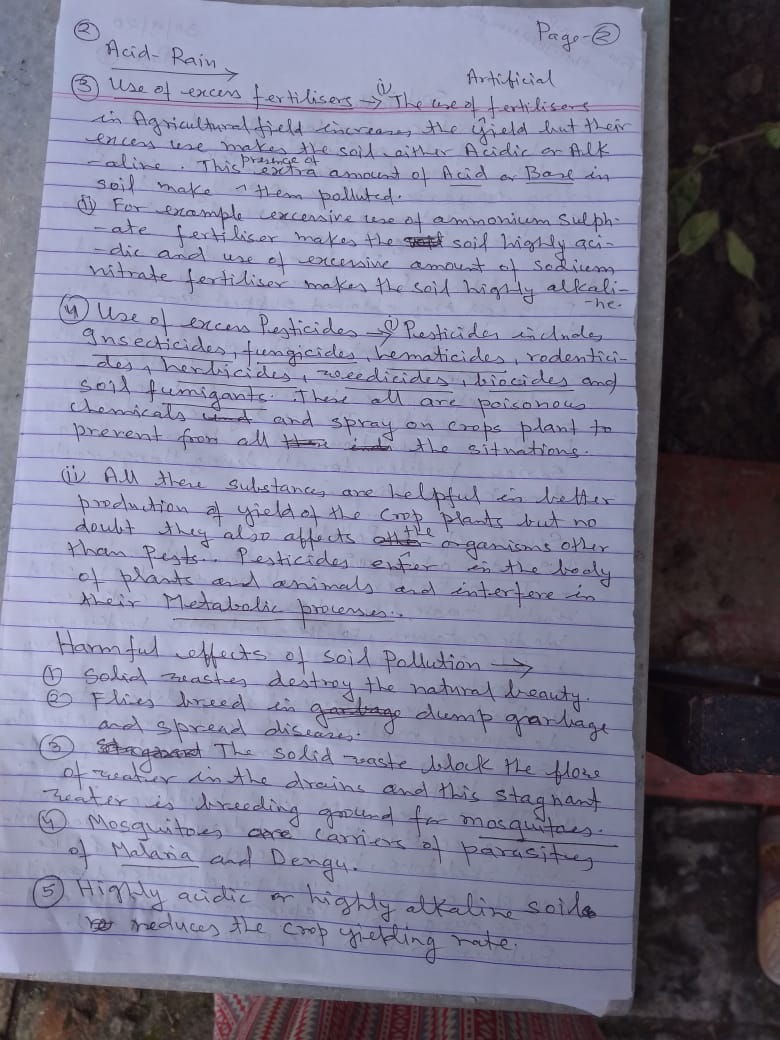 Page-②
② Acid-Rain →
③ Use of excess fertilisers → (i) The use of Artificial fertilisers
in Agricultural field increases the yield but their
excess use makes the soil either Acidic or Alk
-aline. This presence of extra amount of Acid or Base in
soil make them polluted.
(ii) For example excessive use of ammonium Sulph-
-ate fertiliser makes the soil highly aci-
-dic and use of excessive amount of sodium
nitrate fertiliser makes the soil highly alkali-
-ne.
④ Use of excess Pesticides → (i) Pesticides includes
Insecticides, fungicides, nematicides, rodentici-
-des, herbicides, weedicides, biocides and
soil fumigants. These all are poisonous
chemicals and spray on crops plant to
prevent from all the situations.
(ii) All these substances are helpful in better
production of yield of the crop plants but no
doubt they also affects the organisms other
than Pests. Pesticides enter in the body
of plants and animals and interfere in
their Metabolic processes.
Harmful effects of soil Pollution →
① Solid wastes destroy the natural beauty.
② Flies breed in dump garbage
and spread diseases.
③ The solid waste block the flow
of water in the drains and this stagnant
water is breeding ground for mosquitoes.
④ Mosquitoes are carriers of parasites
of Malaria and Dengu.
⑤ Highly acidic or highly alkaline soils
reduces the crop yielding rate.